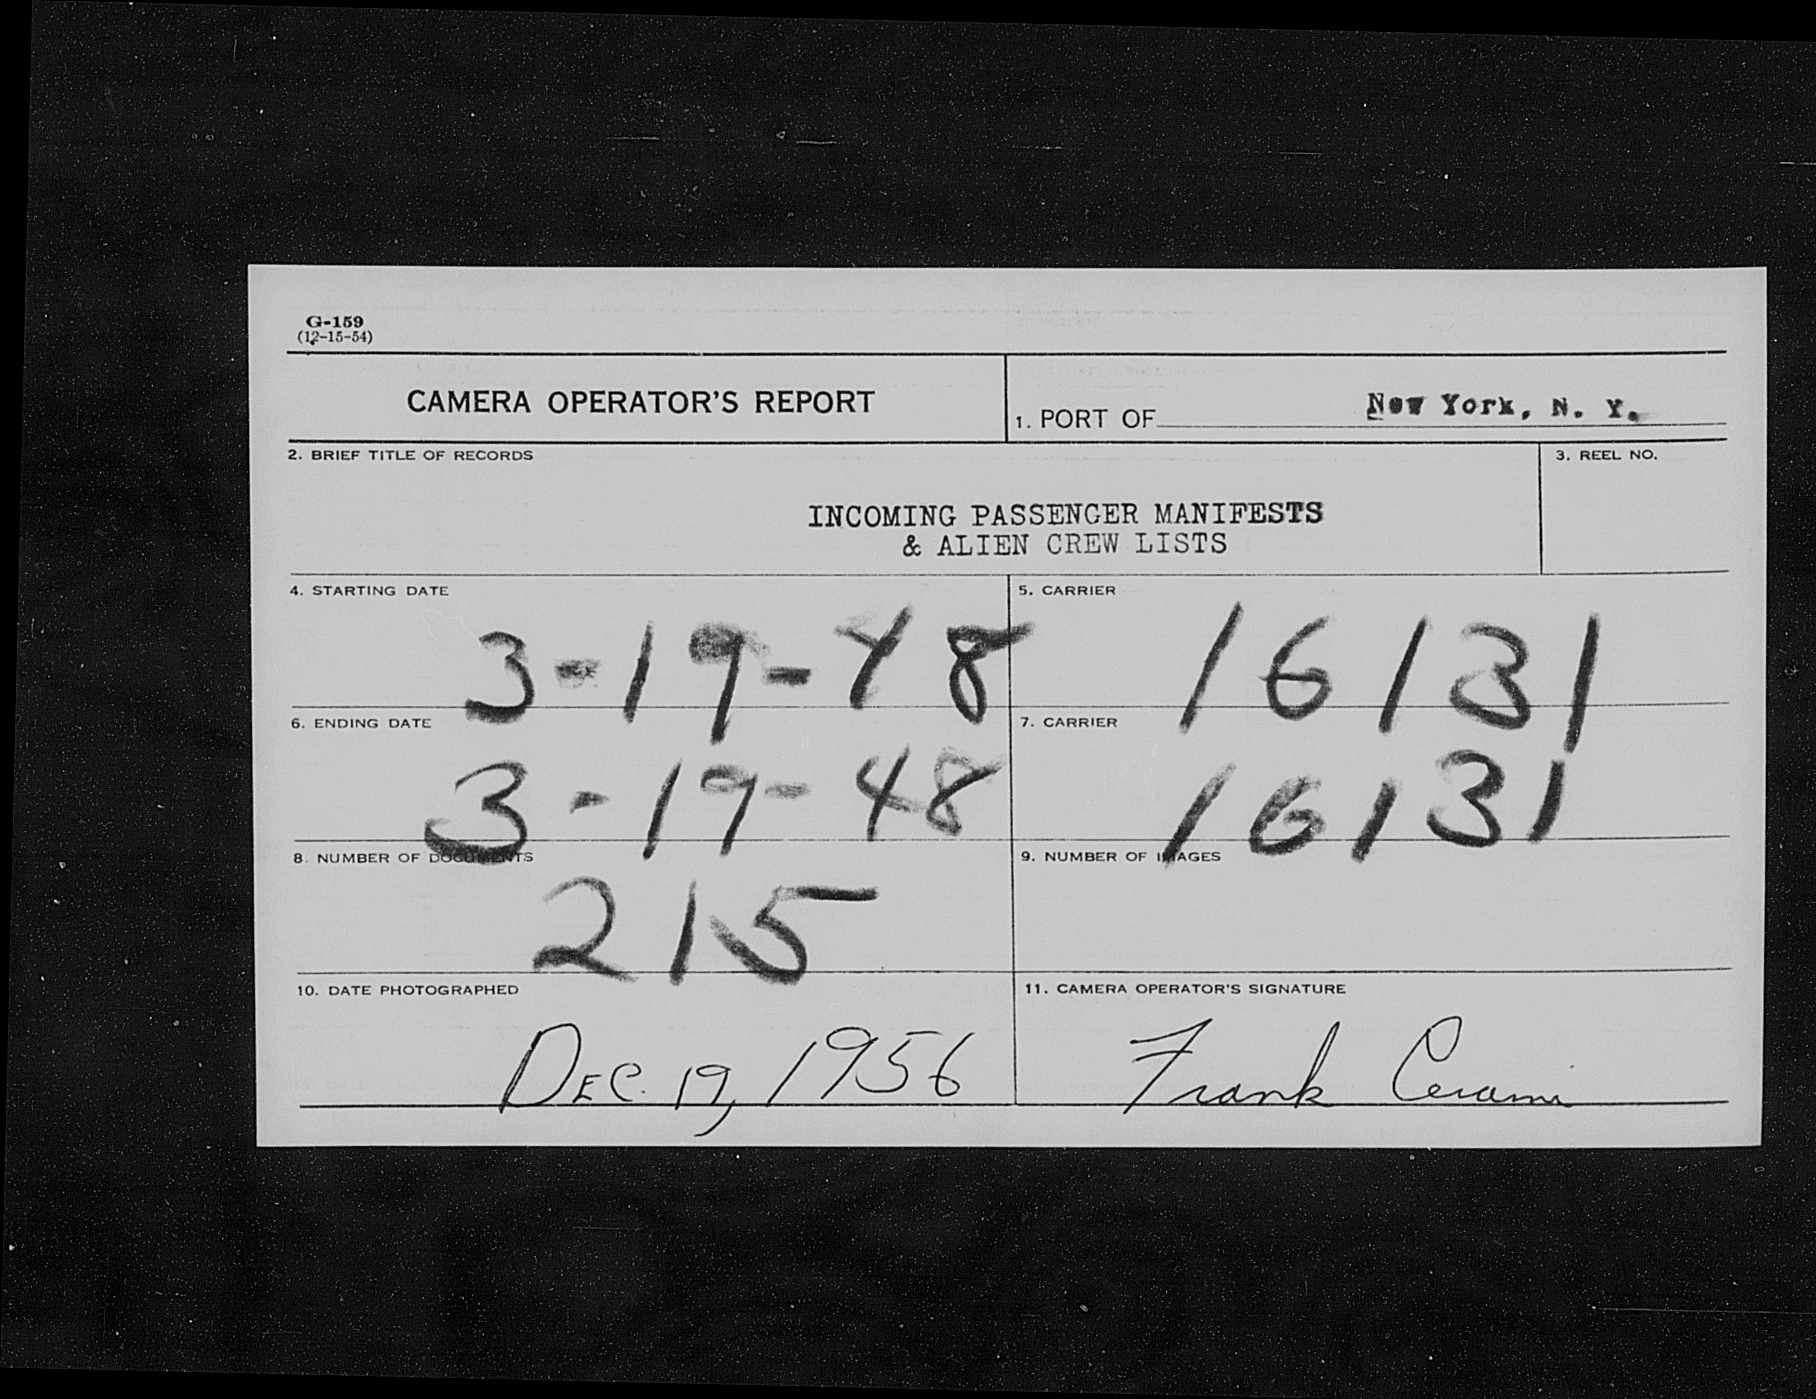 G-159
(12-15-54)
CAMERA OPERATOR'S REPORT
1. PORT OF New York, N. Y.
2. BRIEF TITLE OF RECORDS
3. REEL NO.
INCOMING PASSENGER MANIFESTS
& ALIEN CREW LISTS
4. STARTING DATE
3-19-48
5. CARRIER
16131
6. ENDING DATE
3-19-48
7. CARRIER
16131
8. NUMBER OF DOCUMENTS
215
9. NUMBER OF IMAGES
10. DATE PHOTOGRAPHED
DEC. 19, 1956
11. CAMERA OPERATOR'S SIGNATURE
Frank Cerami